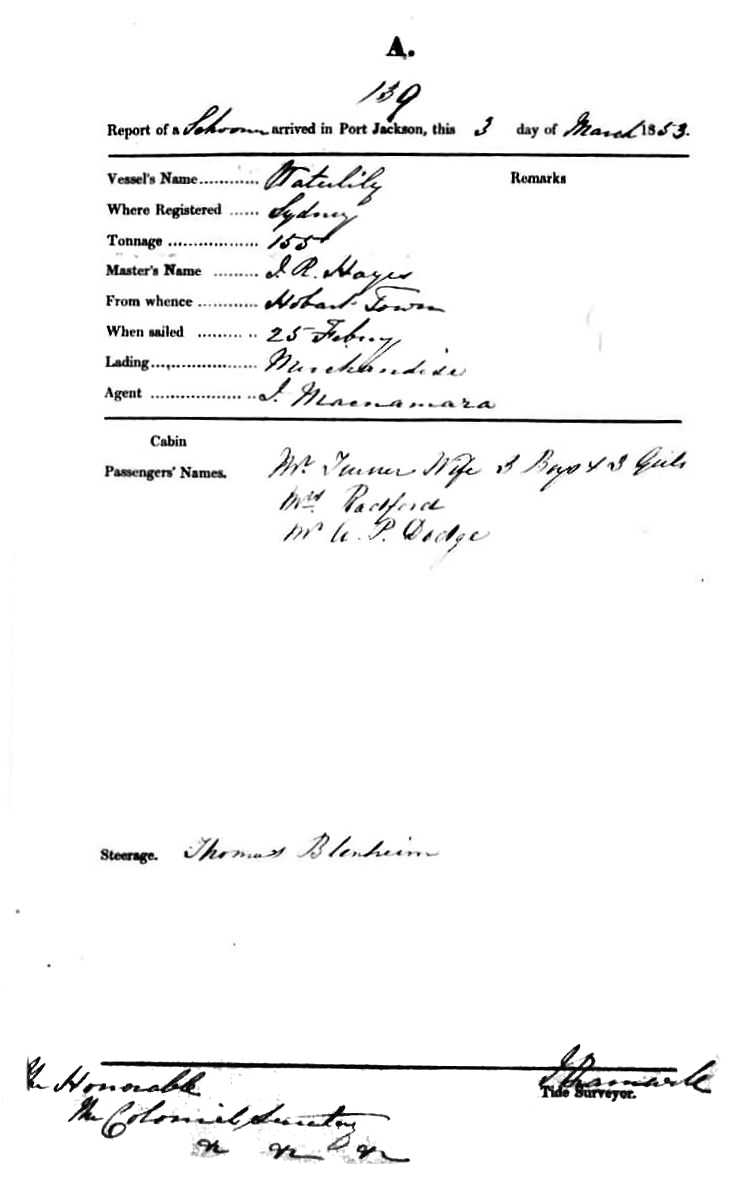 A.
139
Report of a Schooner arrived in Port Jackson, this 3 day of March 1853.
Vessel's Name Waterlily
Remarks
Where Registered Sydney
Tonnage 155
Master's Name J. R. Hayes
From whence Hobart Town
When sailed 25 Febry
Lading Merchandise
Agent J. Macnamara
Cabin
Passengers' Names. Mr. Turner Wife 3 Boys & 3 Girls
Radford
Mr P. Dodge
Steerage. Thomas Blenheim
The Honorable
Tide Surveyor.
The Colonial Secretary